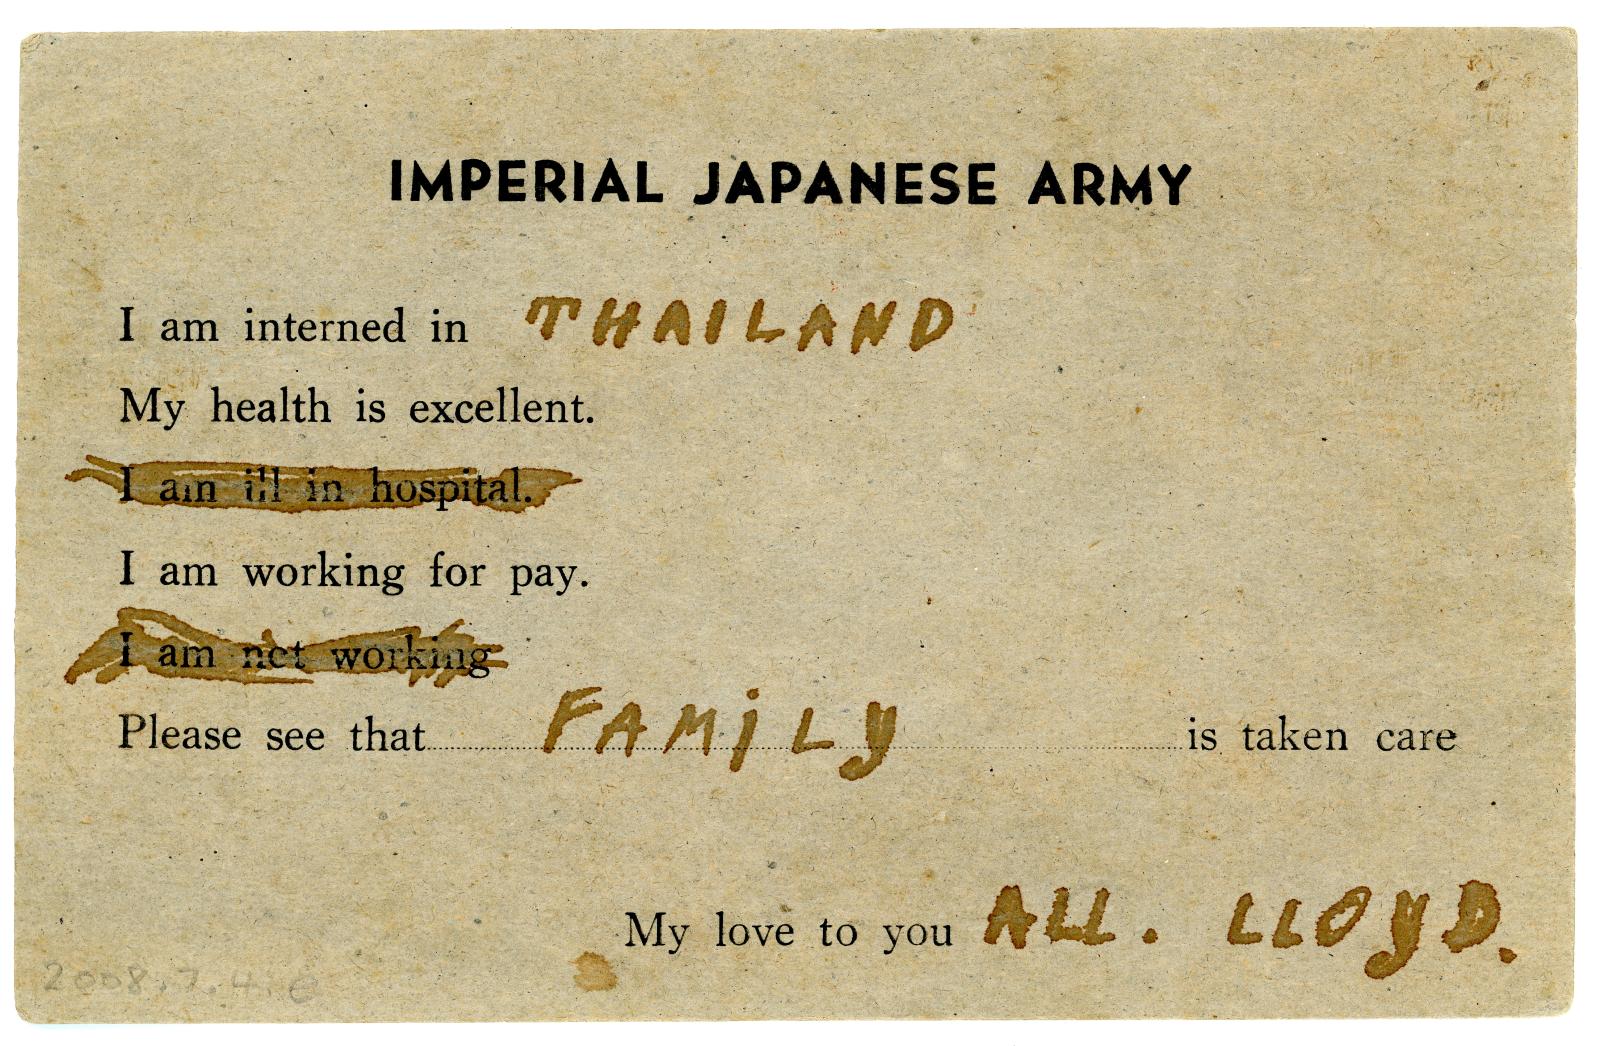 IMPERIAL JAPANESE ARMY
I am interned in THAILAND
My health is excellent.
I am ill in hospital.
I am working for pay.
I am not working
Please see that FAMiLy is taken care
My love to you ALL. LLOyD.
2008.7.4.e